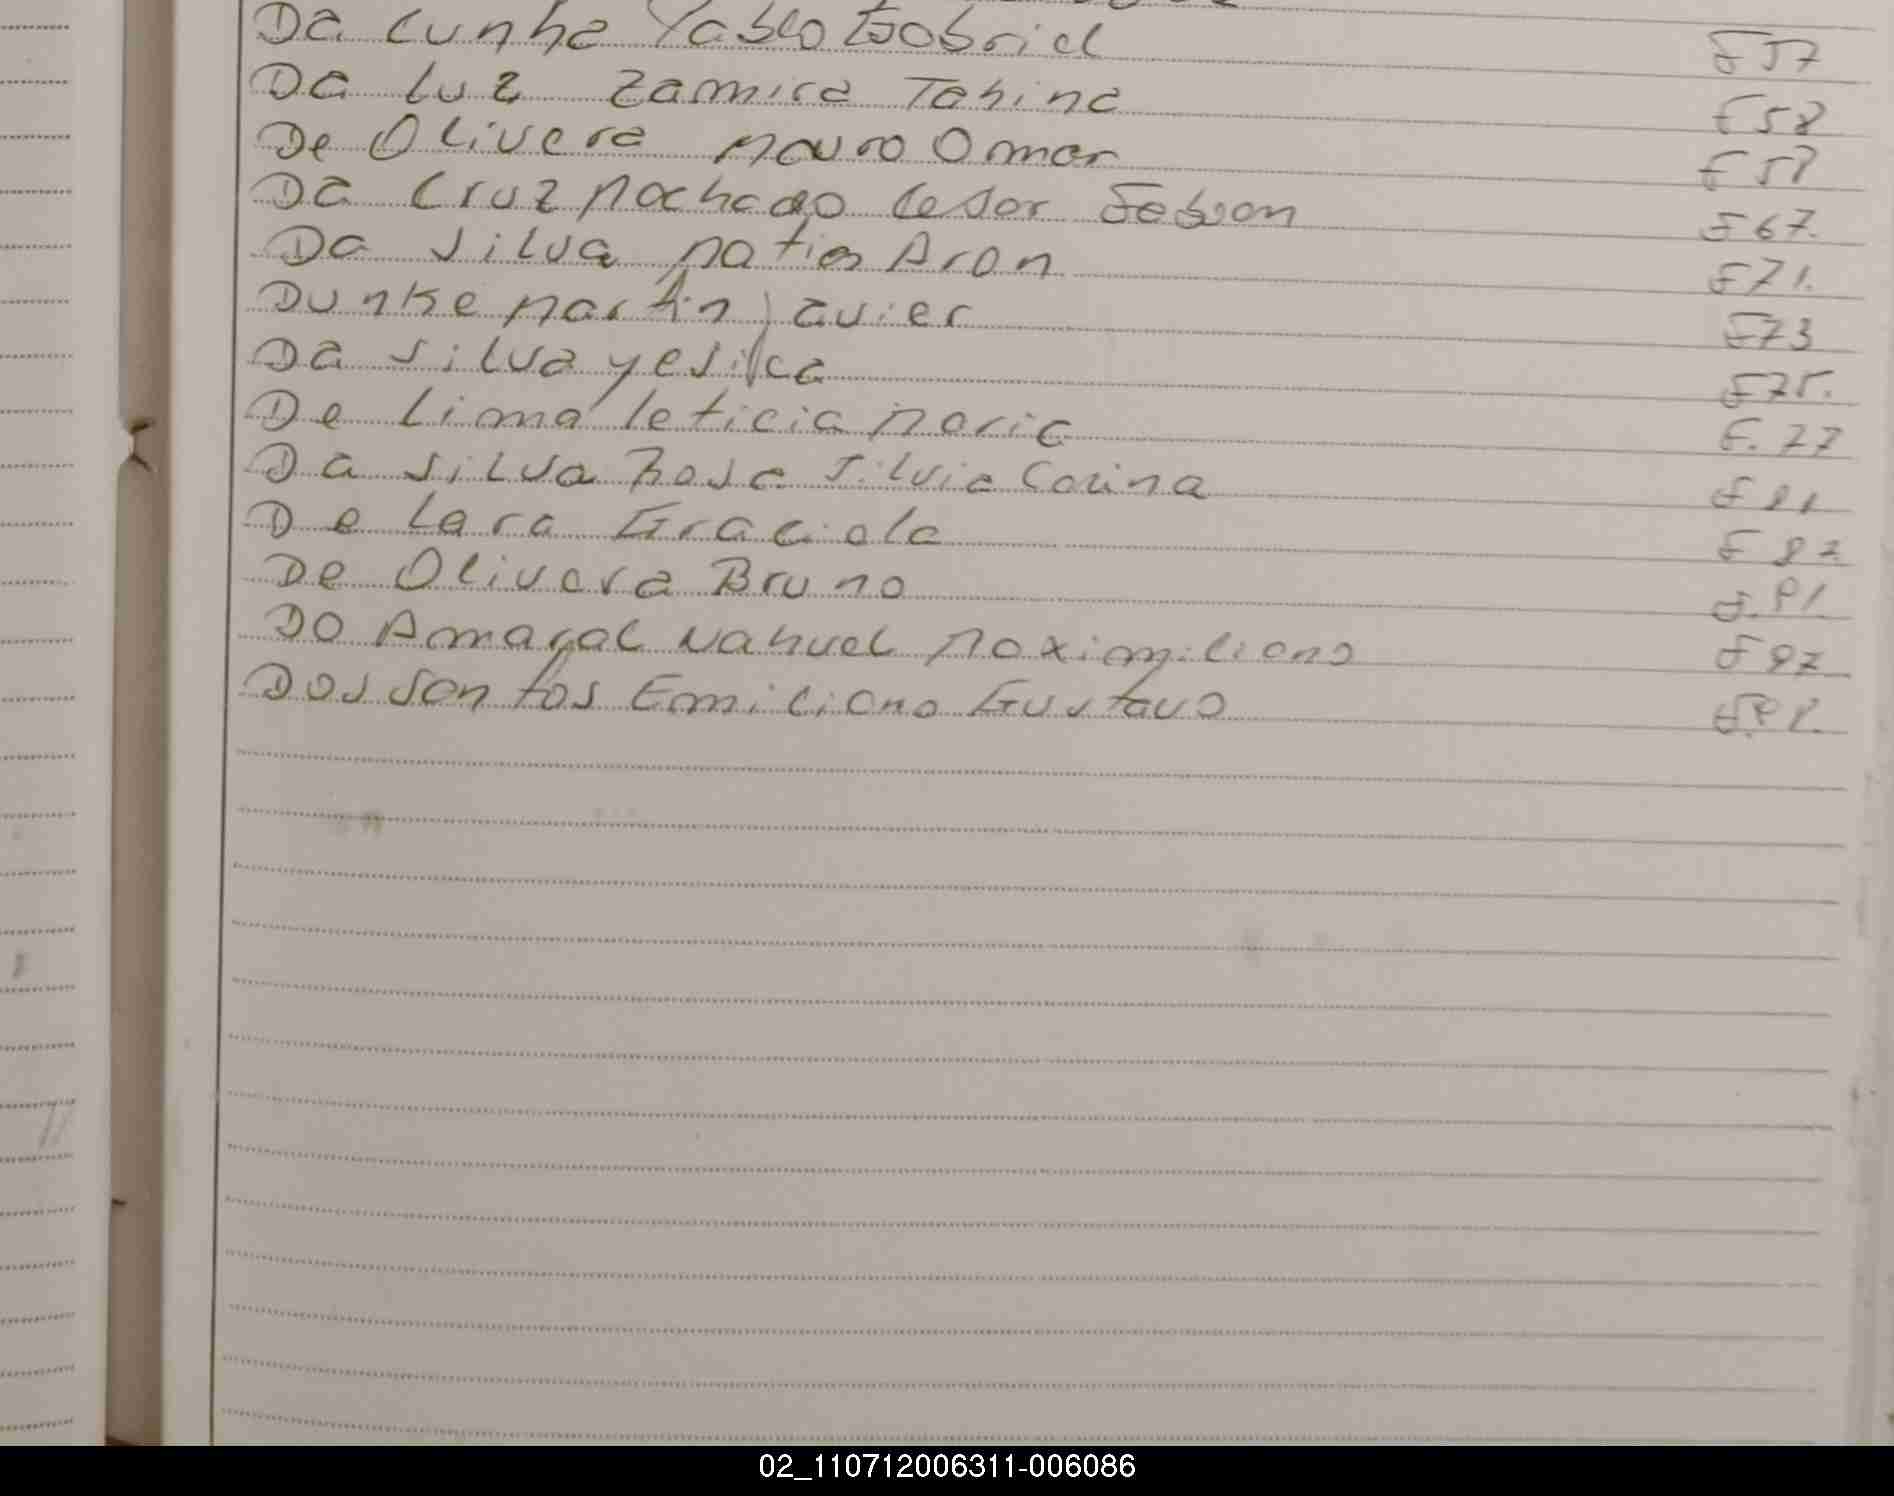 Da Cunha Pablo Gabriel F57
Da Luz Zamira Tahina F58
De Olivera Mauro Omar F59
Da Cruz Machado Cesar Fabian F67.
Da Silva Matias Aron F71.
Dunke Martin Javier F73
Da Silva Yesica F75.
De Lima Leticia Maria F.77
Da Silva Rosa Silvia Carina F81
De Lara Graciela F82
De Olivera Bruno F.91
Do Amaral Nahuel Maximiliano F97
Dos Santos Emiliano Gustavo
02_110712006311-006086